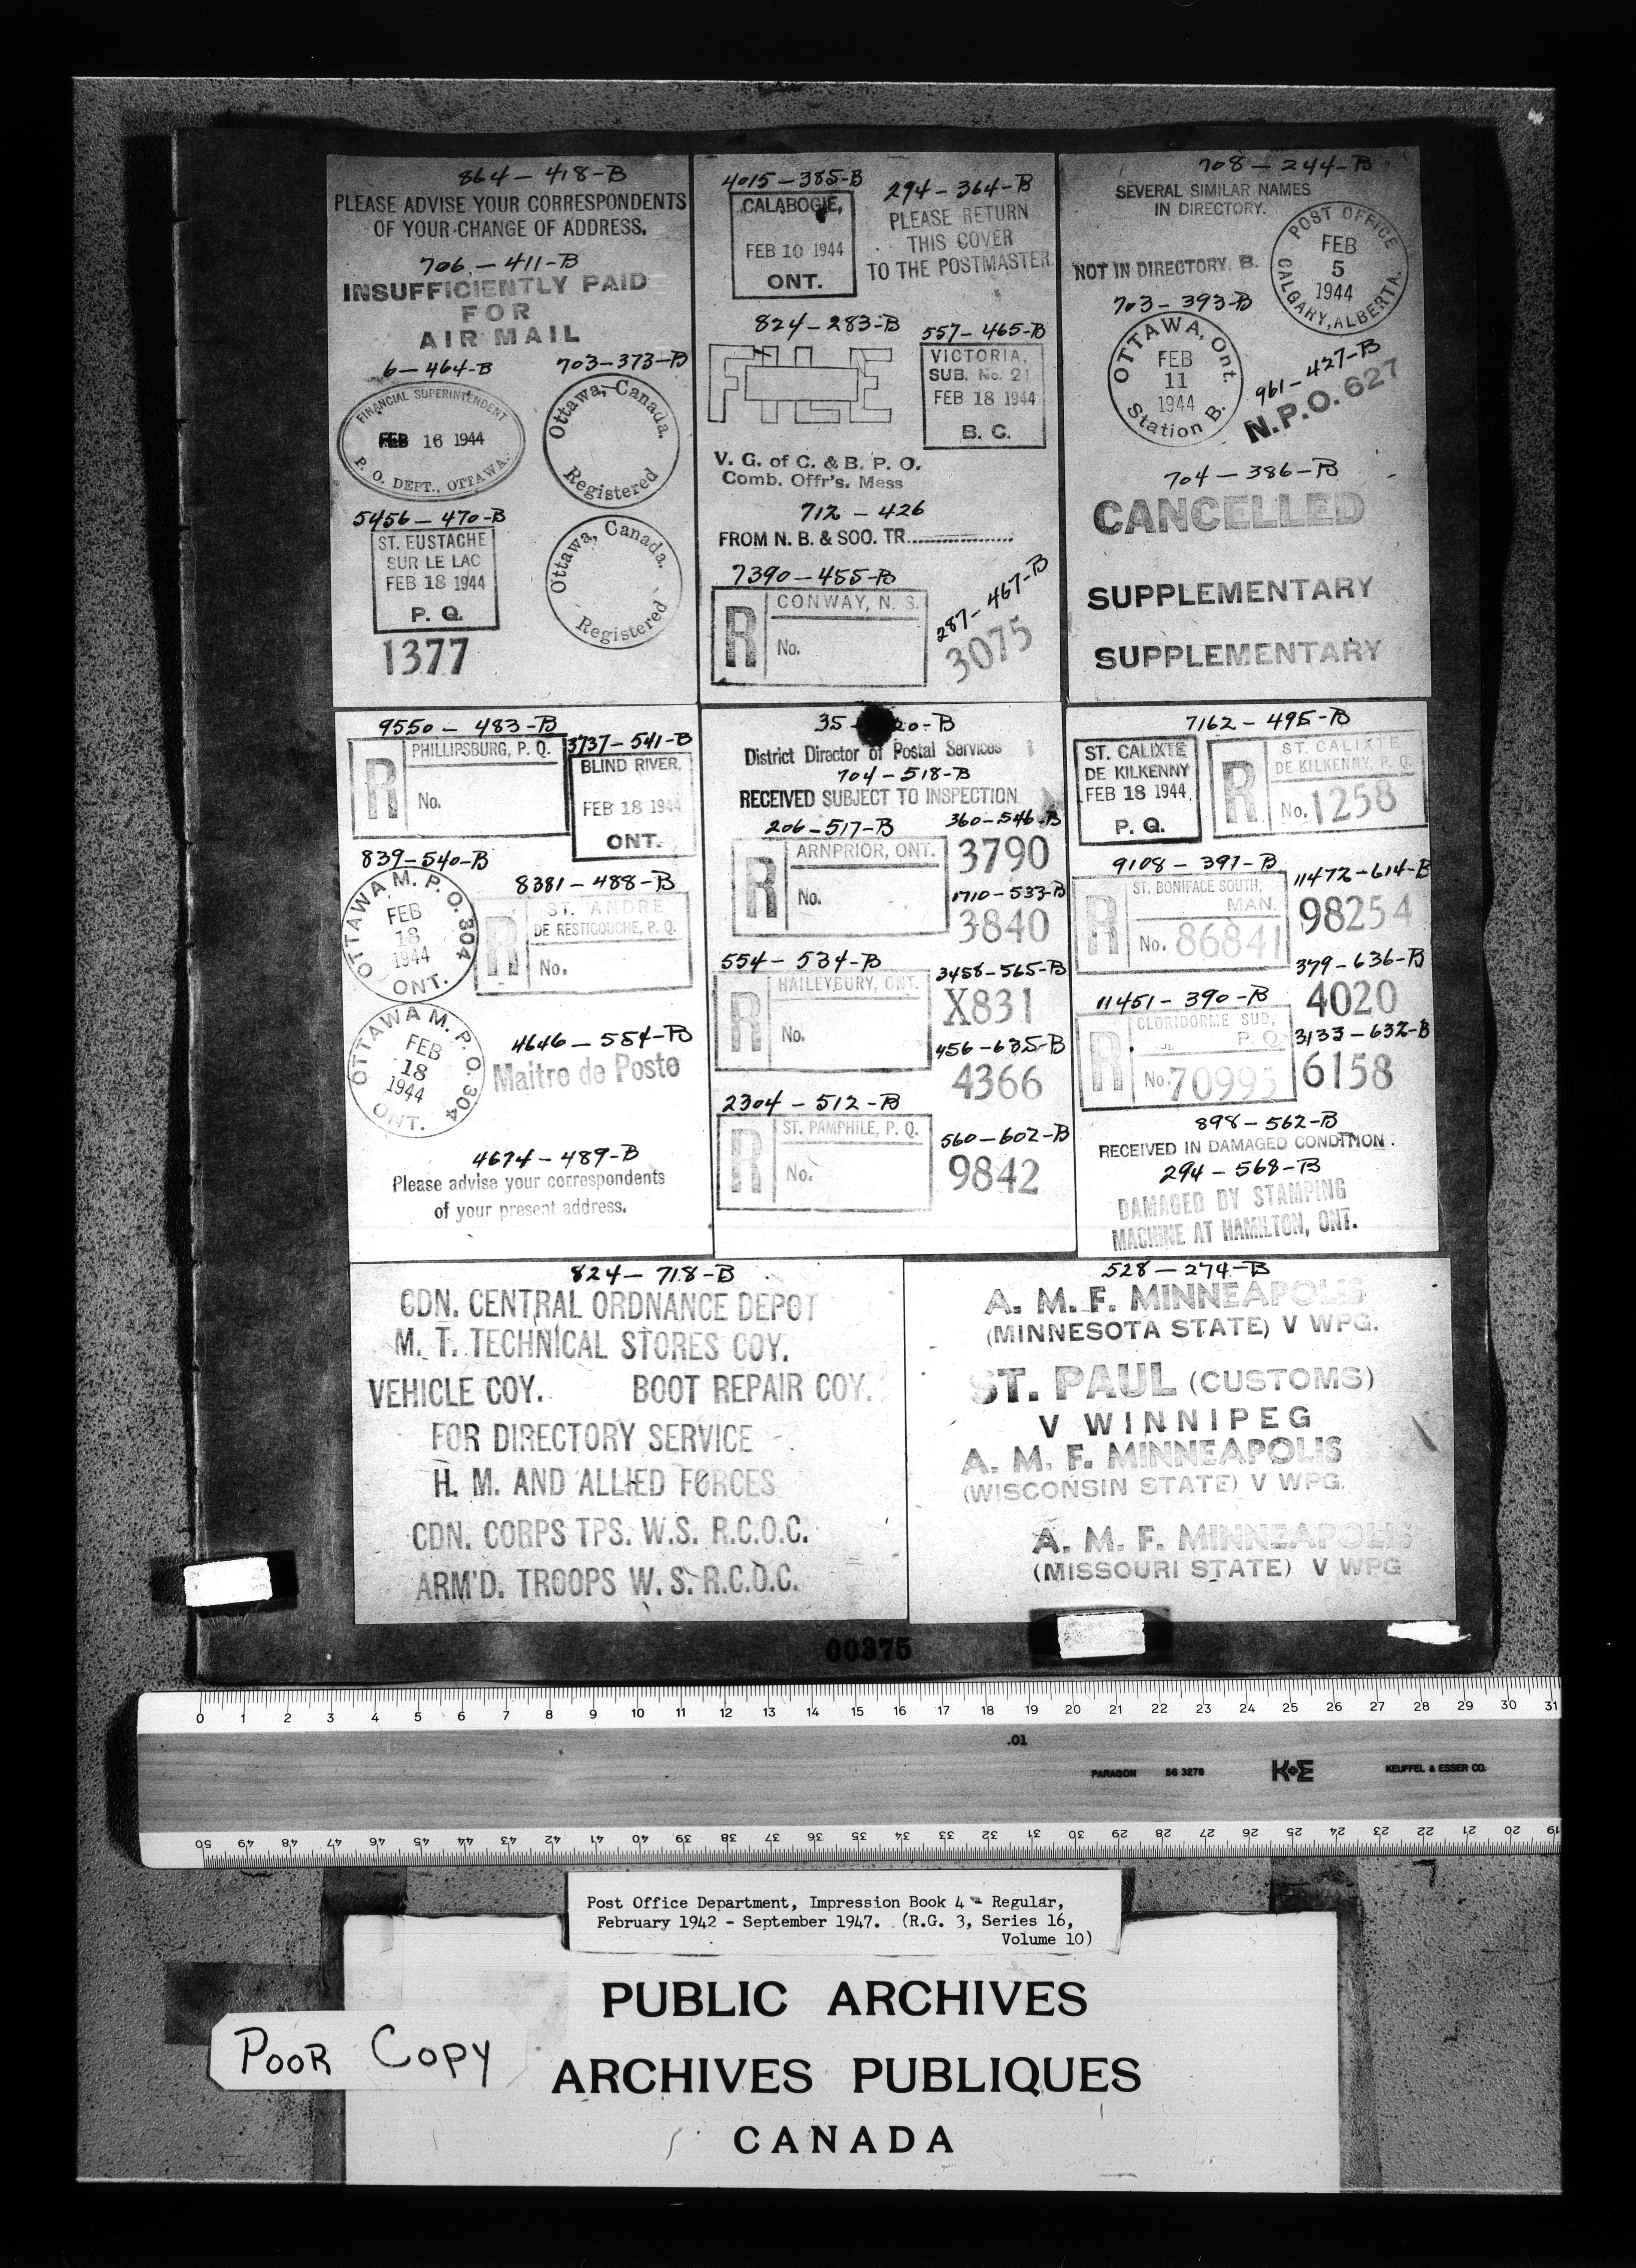 864 - 418-B
PLEASE ADVISE YOUR CORRESPONDENTS
OF YOUR CHANGE OF ADDRESS.
706 - 411-B
INSUFFICIENTLY PAID
FOR
AIR MAIL
6 - 464-B
FINANCIAL SUPERINTENDENT
FEB 16 1944
P. O. DEPT., OTTAWA.
703-373-B
Ottawa, Canada.
Registered
5456 - 470-B
ST. EUSTACHE
SUR LE LAC
FEB 18 1944
P. Q.
1377
Ottawa, Canada.
Registered
4015-385-B
CALABOGIE,
FEB 10 1944
ONT.
294-364-B
PLEASE RETURN
THIS COVER
TO THE POSTMASTER
824-283-B
557-465-B
VICTORIA,
SUB. No. 21
FEB 18 1944
B. C.
V. G. of C. & B. P. O.
Comb. Offr's. Mess
712 - 426
FROM N. B. & SOO. TR.
7390-455-B
R
CONWAY, N. S.
No.
287-467-B
3075
708 - 244-B
SEVERAL SIMILAR NAMES
IN DIRECTORY.
POST OFFICE
FEB
5
1944
CALGARY, ALBERTA.
NOT IN DIRECTORY. B.
703-393-B
OTTAWA, Ont.
FEB
11
1944
Station B.
961-427-B
N.P.O. 627
704-386-B
CANCELLED
SUPPLEMENTARY
SUPPLEMENTARY
9550 - 483-B
R
PHILLIPSBURG, P. Q.
No.
3737-541-B
BLIND RIVER,
FEB 18 1944
ONT.
839-540-B
OTTAWA M. P. O. 304
FEB
18
1944
ONT.
8381-488-B
R
ST. ANDRE
DE RESTIGOUCHE, P. Q.
No.
OTTAWA M. P. O. 304
FEB
18
1944
ONT.
4646-554-B
Maitre de Poste
4674-489-B
Please advise your correspondents
of your present address.
35-
20-B
District Director of Postal Services
704-518-B
RECEIVED SUBJECT TO INSPECTION
206-517-B
R
ARNPRIOR, ONT.
No.
360-546-B
3790
1710-533-B
3840
554-534-B
R
HAILEYBURY, ONT.
No.
3458-565-B
X831
456-635-B
4366
2304-512-B
R
ST. PAMPHILE, P. Q.
No.
560-602-B
9842
7162-495-B
ST. CALIXTE
DE KILKENNY
FEB 18 1944
P. Q.
R
ST. CALIXTE
DE KILKENNY, P. Q.
No. 1258
9108-397-B
R
ST. BONIFACE SOUTH,
MAN.
No. 86841
11472-614-B
98254
379-636-B
4020
11451-390-B
R
CLORIDORME SUD,
P. Q.
No. 70995
3133-632-B
6158
898-562-B
RECEIVED IN DAMAGED CONDITION.
294-568-B
DAMAGED BY STAMPING
MACHINE AT HAMILTON, ONT.
824-718-B
CDN. CENTRAL ORDNANCE DEPOT
M. T. TECHNICAL STORES COY.
VEHICLE COY. BOOT REPAIR COY.
FOR DIRECTORY SERVICE
H. M. AND ALLIED FORCES
CDN. CORPS TPS. W.S. R.C.O.C.
ARM'D. TROOPS W. S. R.C.O.C.
528-274-B
A. M. F. MINNEAPOLIS
(MINNESOTA STATE) V WPG.
ST. PAUL (CUSTOMS)
V WINNIPEG
A. M. F. MINNEAPOLIS
(WISCONSIN STATE) V WPG.
A. M. F. MINNEAPOLIS
(MISSOURI STATE) V WPG
00375
0 1 2 3 4 5 6 7 8 9 10 11 12 13 14 15 16 17 18 19 20 21 22 23 24 25 26 27 28 29 30 31
.01
PARAGON 56 3278 K+E KEUFFEL & ESSER CO.
50 49 48 47 46 45 44 43 42 41 40 39 38 37 36 35 34 33 32 31 30 29 28 27 26 25 24 23 22 21 20 19
Post Office Department, Impression Book 4 - Regular,
February 1942 - September 1947. (R.G. 3, Series 16,
Volume 10)
PUBLIC ARCHIVES
ARCHIVES PUBLIQUES
CANADA
POOR COPY